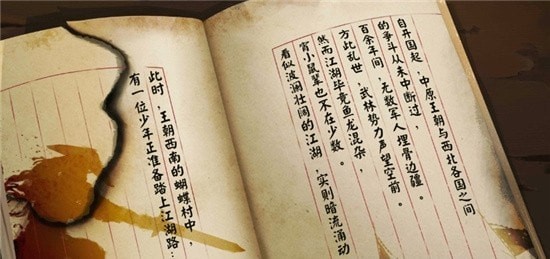 自开国起，中原王朝与西北各国之间
的争斗从未中断过，
百余年间，无数军人埋骨边疆。
方此乱世，武林势力声望空前。
然而江湖毕竟鱼龙混杂，
宵小鼠辈也不在少数。
看似波澜壮阔的江湖，实则暗流涌动
此时，王朝西南的蝴蝶村中，
有一位少年正准备踏上江湖路…